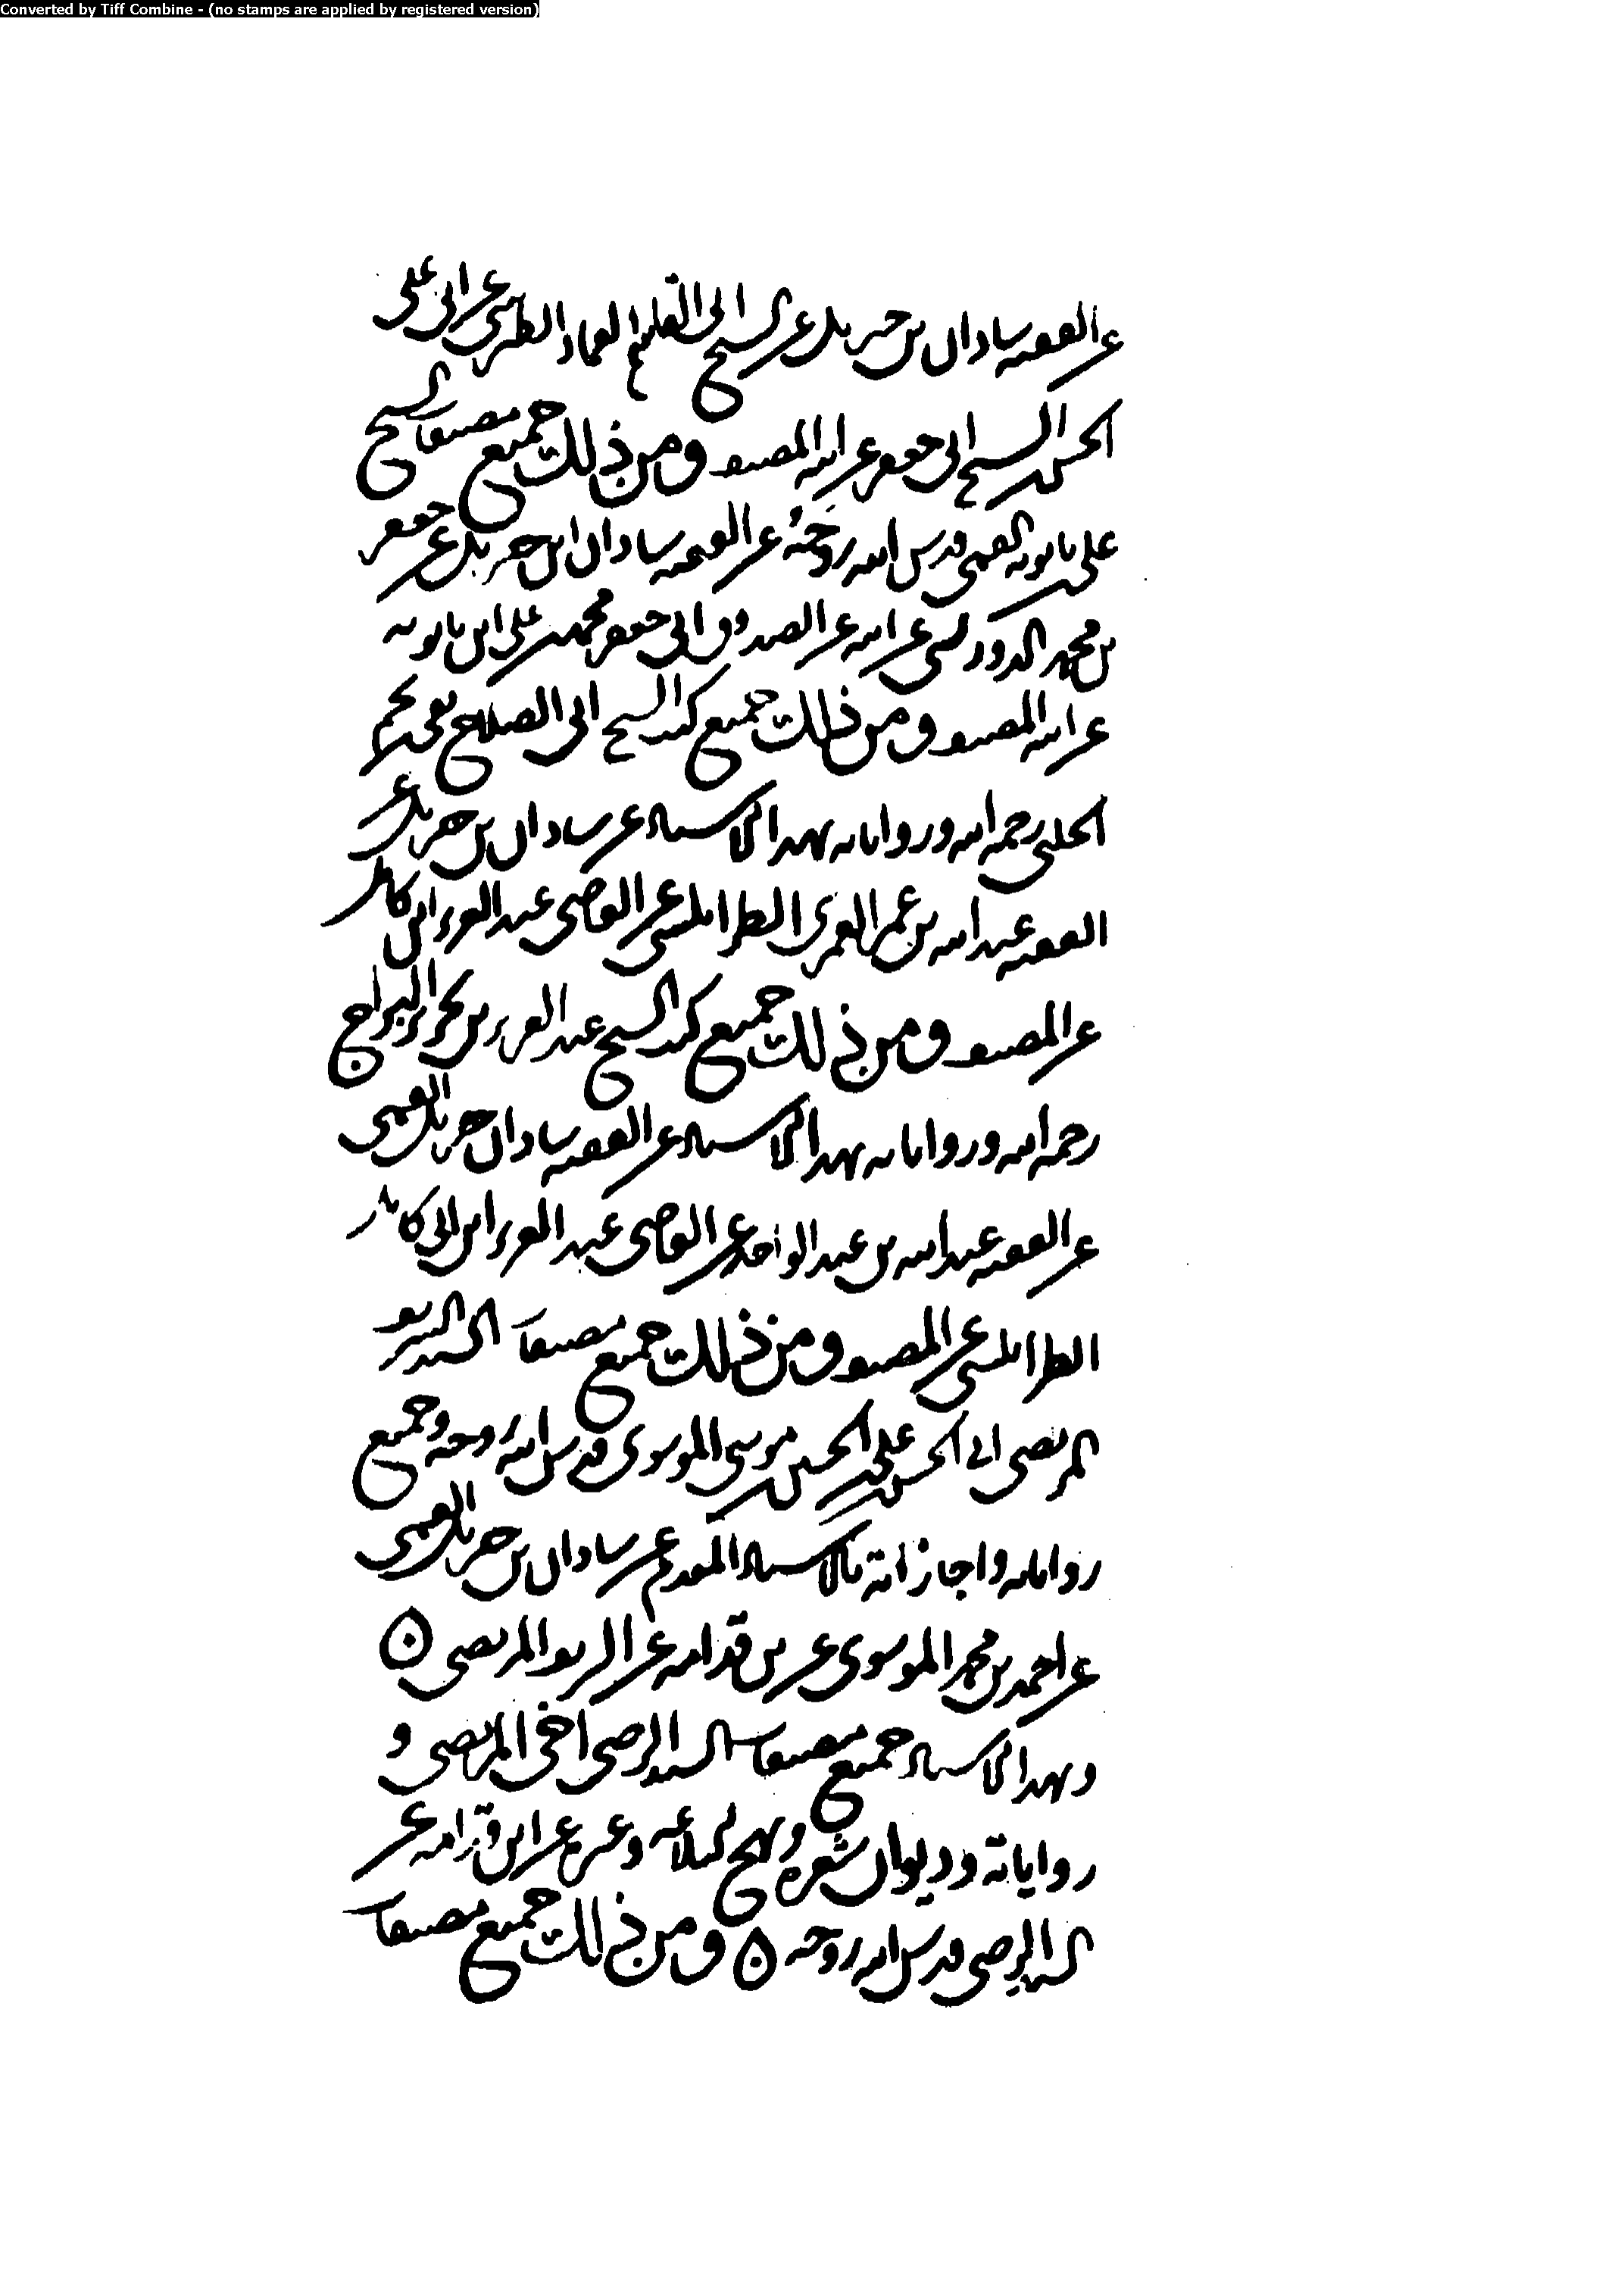 Converted by Tiff Combine - (no stamps are applied by registered version)
عن الفقيه شاذان بن جبريل عن الشيخ ابى القاسم العماد الطبرى عن ابى على
الحسن بن الشيخ ابى جعفر عن ابيه المصنف ومن ذلك جميع مصنفات الشيخ
على بن بابويه القمى قدس الله روحه عن الفقيه شاذان ابن جبريل عن جعفر
بن محمد الدوريستى عن ابيه عن الصدوق ابى جعفر محمد بن على ابن بابويه
عن ابيه المصنف ومن ذلك جميع كتب الشيخ ابى الصلاح تقى بن نجم
الحلبى رحمه الله ورواياته بهذا الاسناد عن شاذان بن جبريل عن
الفقيه عبد الله بن عمر العمرى الطرابلسى عن القاضى عبد العزيز ابن كامل
عن المصنف ومن ذلك جميع كتب الشيخ عبد العزيز بن نحرير البراج
رحمه الله ورواياته بهذا الاسناد عن الفقيه شاذان بن جبريل القمى
عن الفقيه عبد الله بن عبد الواحد عن القاضى عبد العزيز ابن ابى كامل
الطرابلسى عن المصنف ومن ذلك جميع مصنفات السيد الشريف
المرتضى ابى الحسن على بن الحسين بن موسى الموسوى قدس الله روحه وجميع
رواياته واجازاته بالاسناد المقدم عن شاذان بن جبريل القمى
عن احمد بن محمد الموسوى عن بن قدامه عن الشريف المرتضى ٥
وبهذا الاسناد جميع مصنفات السيد الرضى اخى المرتضى و
رواياته وديوان شعره ونهج البلاغه وعن عن ابن قدامه عن
السيد الرضى قدس الله روحه ٥ ومن ذلك جميع مصنفات